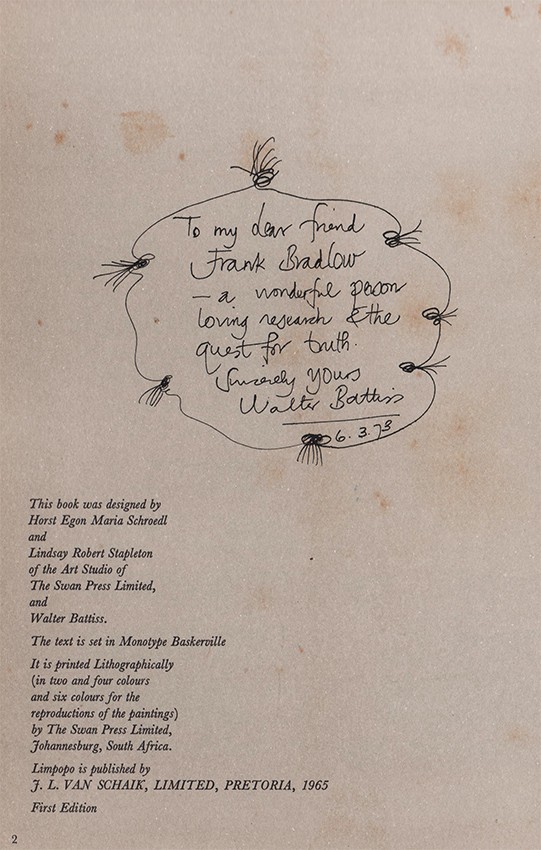 To my dear friend
Frank Bradlow
— a wonderful person
loving research & the
quest for truth.
Sincerely yours
Walter Battiss
6.3.73
This book was designed by
Horst Egon Maria Schroedl
and
Lindsay Robert Stapleton
of the Art Studio of
The Swan Press Limited,
and
Walter Battiss.
The text is set in Monotype Baskerville
It is printed Lithographically
(in two and four colours
and six colours for the
reproductions of the paintings)
by The Swan Press Limited,
Johannesburg, South Africa.
Limpopo is published by
J. L. VAN SCHAIK, LIMITED, PRETORIA, 1965
First Edition
2